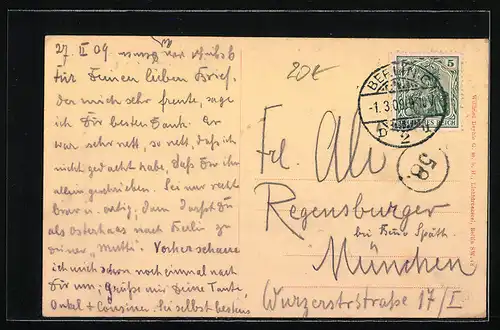 27 II 09
Für Deinen lieben Brief,
der mich sehr freute, sage
ich Dir besten Dank. Er
war sehr nett, so nett, daß ich
nicht gedacht habe, daß Du ihn
allein geschrieben. Sei nur recht
brav u. artig, dann darfst Du
als Osterhaas nach Berlin zu
Deiner "Mutti". Vorher schaue
ich mich schon noch einmal nach
Dir um; Grüße mir Deine Tante,
Onkel + Cousinen. Sei selbst bestens
20€
BERLIN C.
-1.3.09
2
5
58
Frl. Ali
Regensburger
bei Späth
München
Wurzerstraße 17/I